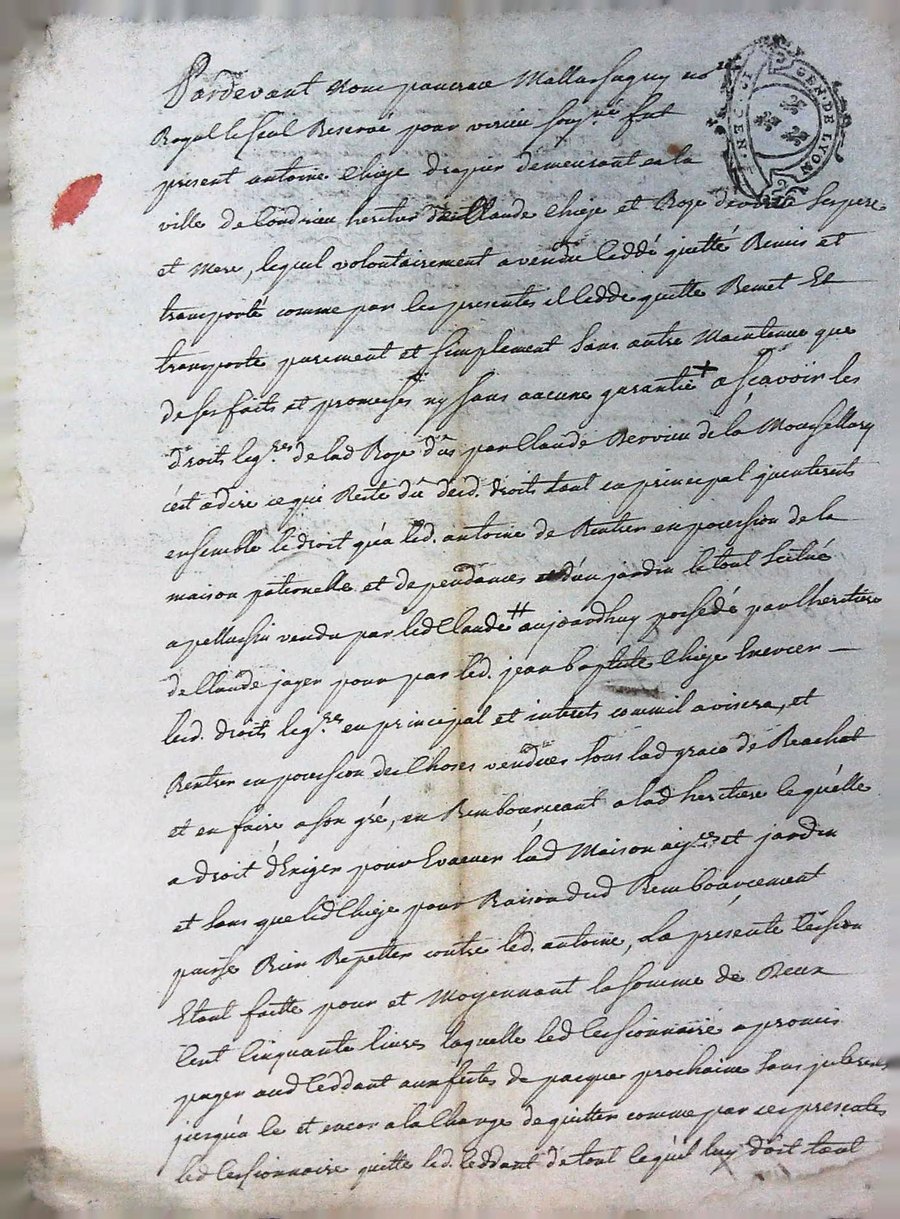 Pardevant nous pancrace Mallassagny no.re
Royal le seul Reservé pour virieu soussigné fut
present antoine Chieze drapier demeurant en la
ville de Condrieu heritier de Claude Chieze et Roze ses pere
et mere, lequel volontairement a vendu ceddé quitté Remis et
transporté comme par les presentes il cedde quitte Remet Et
transporte purement et simplement sans autre Maintenue que
de ses faits et promesses ny sans aucune garantie + a sçavoir les
droits leg.res de lad Roze dûs par Claude Vervieu de la
c'est a dire ce qui Reste dû desd. droits tant en principal qu'interests
ensemble le droit qu'a led. antoine de Rentrer en pocession de la
maison paternelle et dependances et d'un jardin le tout scitué
a pellussin vendu par led Claude ++ aujourdhuy possedé par l'heritiere
de Claude jayer pour par led. jean baptiste Chieze Exercer
lesd. droits leg.res en principal et interets comm'il avisera, et
Rentrer en pocession des Choses vendües sous lad grace de Reachat
et en faire a son gré, en Rembourceant a lad heritiere ce qu'elle
a droit d'Exiger pour Evacuer lad Maison aizes et jardin
et sans que led Chieze pour Raison dud Rembourcement
puisse Rien Repetter contre led. antoine, La présente Cession
Etant faitte pour et Moyennant la somme de Deux
Cent Cinquante livres laquelle led Cessionnaire a promis
payer aud Ceddant aux fêtes de pacque prochaine sans interests
jusqu'a ce et encor a la Charge de quitter comme par ces presentes
led Cessionnaire quitte led. Ceddant de tout ce qu'il luy doit tant
GEN. DE LYON